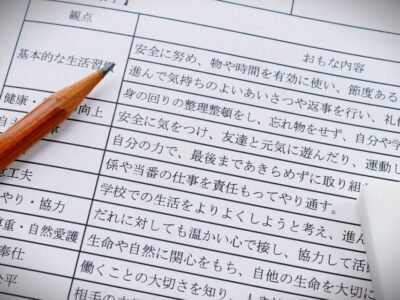 】
観点
おもな内容
基本的な生活習慣
安全に努め、物や時間を有効に使い、節度ある
進んで気持ちのよいあいさつや返事を行い、礼
身の回りの整理整頓をし、忘れ物をせず、自分や
健康・ 向上
安全に気をつけ、友達と元気に遊んだり、運動し
自主
自分の力で、最後まであきらめずに取り組
係や当番の仕事を責任もってやり通す。
意工夫
学校での生活をよりよくしようと考え、進ん
やり・協力
だれに対しても温かい心で接し、協力して活
尊重・自然愛護
生命や自然に関心をもち、自他の生命を大切
奉仕
働くことの大切さを知り、
公平
相手の